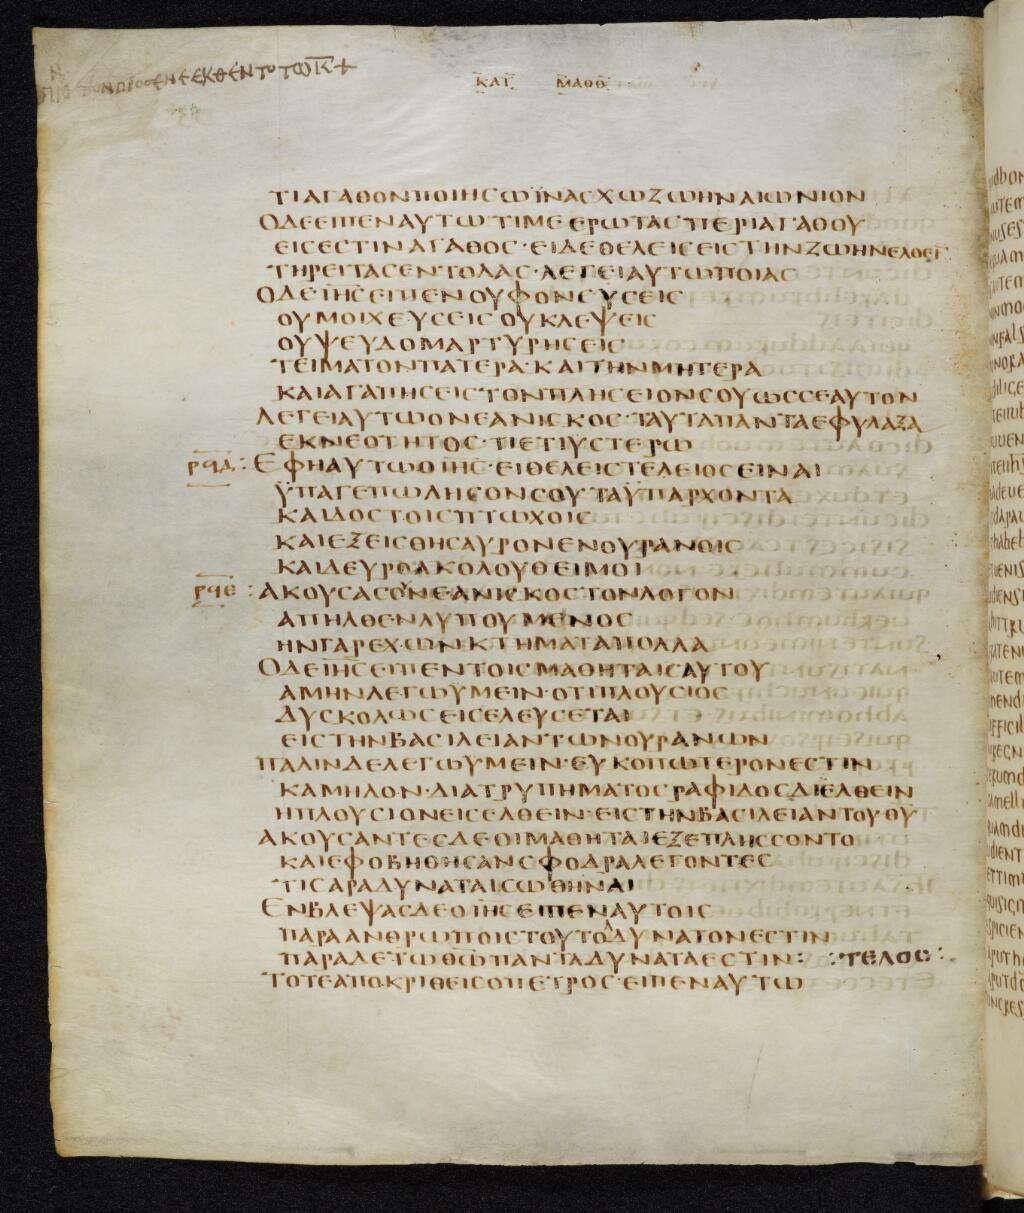 ΚΑΤ ΜΑΘΘ
ΤΙΑΓΑΘΟΝΠΟΙΗСΩΪΝΑСΧΩΖΩΗΝΑΙΩΝΙΟΝ
ΟΔΕΕΙΠΕΝΑΥΤΩ·ΤΙΜΕΕΡΩΤΑСΠΕΡΙΑΓΑΘΟΥ
ΕΙСΕСΤΙΝΑΓΑΘΟС·ΕΙΔΕΘΕΛΕΙСΕΙСΤΗΝΖΩΗΝΕΛΘΕΙΝ
ΤΗΡΕΙΤΑСΕΝΤΟΛΑС·ΛΕΓΕΙΑΥΤΩΠΟΙΑС
ΟΔΕΙΗСΕΙΠΕΝΟΥΦΟΝΕΥСΕΙС
ΟΥΜΟΙΧΕΥСΕΙСΟΥΚΛΕΨΕΙС
ΟΥΨΕΥΔΟΜΑΡΤΥΡΗСΕΙС
ΤΕΙΜΑΤΟΝΠΑΤΕΡΑ·ΚΑΙΤΗΝΜΗΤΕΡΑ
ΚΑΙΑΓΑΠΗСΕΙСΤΟΝΠΛΗСΕΙΟΝСΟΥΩССΕΑΥΤΟΝ
ΛΕΓΕΙΑΥΤΩΟΝΕΑΝΙСΚΟС·ΤΑΥΤΑΠΑΝΤΑΕΦΥΛΑΞΑ
ΕΚΝΕΟΤΗΤΟС·ΤΙΕΤΙΥСΤΕΡΩ
ΡϤΔ: ΕΦΗΑΥΤΩΟΙΗС·ΕΙΘΕΛΕΙСΤΕΛΕΙΟСΕΙΝΑΙ
ΫΠΑΓΕΠΩΛΗСΟΝСΟΥΤΑΫΠΑΡΧΟΝΤΑ
ΚΑΙΔΟСΤΟΙСΠΤΩΧΟΙС
ΚΑΙΕΞΕΙСΘΗСΑΥΡΟΝΕΝΟΥΡΑΝΟΙС
ΚΑΙΔΕΥΡΟΑΚΟΛΟΥΘΕΙΜΟΙ
ΡϤΕ: ΑΚΟΥСΑСΟΝΕΑΝΙСΚΟСΤΟΝΛΟΓΟΝ
ΑΠΗΛΘΕΝΛΥΠΟΥΜΕΝΟС
ΗΝΓΑΡΕΧΩΝΚΤΗΜΑΤΑΠΟΛΛΑ
ΟΔΕΙΗСΕΙΠΕΝΤΟΙСΜΑΘΗΤΑΙСΑΥΤΟΥ
ΑΜΗΝΛΕΓΩΥΜΕΙΝ·ΟΤΙΠΛΟΥСΙΟС
ΔΥСΚΟΛΩСΕΙСΕΛΕΥСΕΤΑΙ
ΕΙСΤΗΝΒΑСΙΛΕΙΑΝΤΩΝΟΥΡΑΝΩΝ
ΠΑΛΙΝΔΕΛΕΓΩΥΜΕΙΝ·ΕΥΚΟΠΩΤΕΡΟΝΕСΤΙΝ
ΚΑΜΗΛΟΝ·ΔΙΑΤΡΥΠΗΜΑΤΟСΡΑΦΙΔΟСΔΙΕΛΘΕΙΝ
ΗΠΛΟΥСΙΟΝΕΙСΕΛΘΕΙΝ·ΕΙСΤΗΝΒΑСΙΛΕΙΑΝΤΟΥΘΥ
ΑΚΟΥСΑΝΤΕСΔΕΟΙΜΑΘΗΤΑΙΕΞΕΠΛΗССΟΝΤΟ
ΚΑΙΕΦΟΒΗΘΗСΑΝСΦΟΔΡΑΛΕΓΟΝΤΕС
ΤΙСΑΡΑΔΥΝΑΤΑΙСΩΘΗΝΑΙ
ΕΝΒΛΕΨΑСΔΕΟΙΗСΕΙΠΕΝΑΥΤΟΙС
ΠΑΡΑΑΝΘΡΩΠΟΙСΤΟΥΤΟΑΔΥΝΑΤΟΝΕСΤΙΝ
ΠΑΡΑΔΕΤΩΘΩΠΑΝΤΑΔΥΝΑΤΑΕСΤΙΝ: ·:ΤΕΛΟС:·
ΤΟΤΕΑΠΟΚΡΙΘΕΙСΟΠΕΤΡΟС·ΕΙΠΕΝΑΥΤΩ